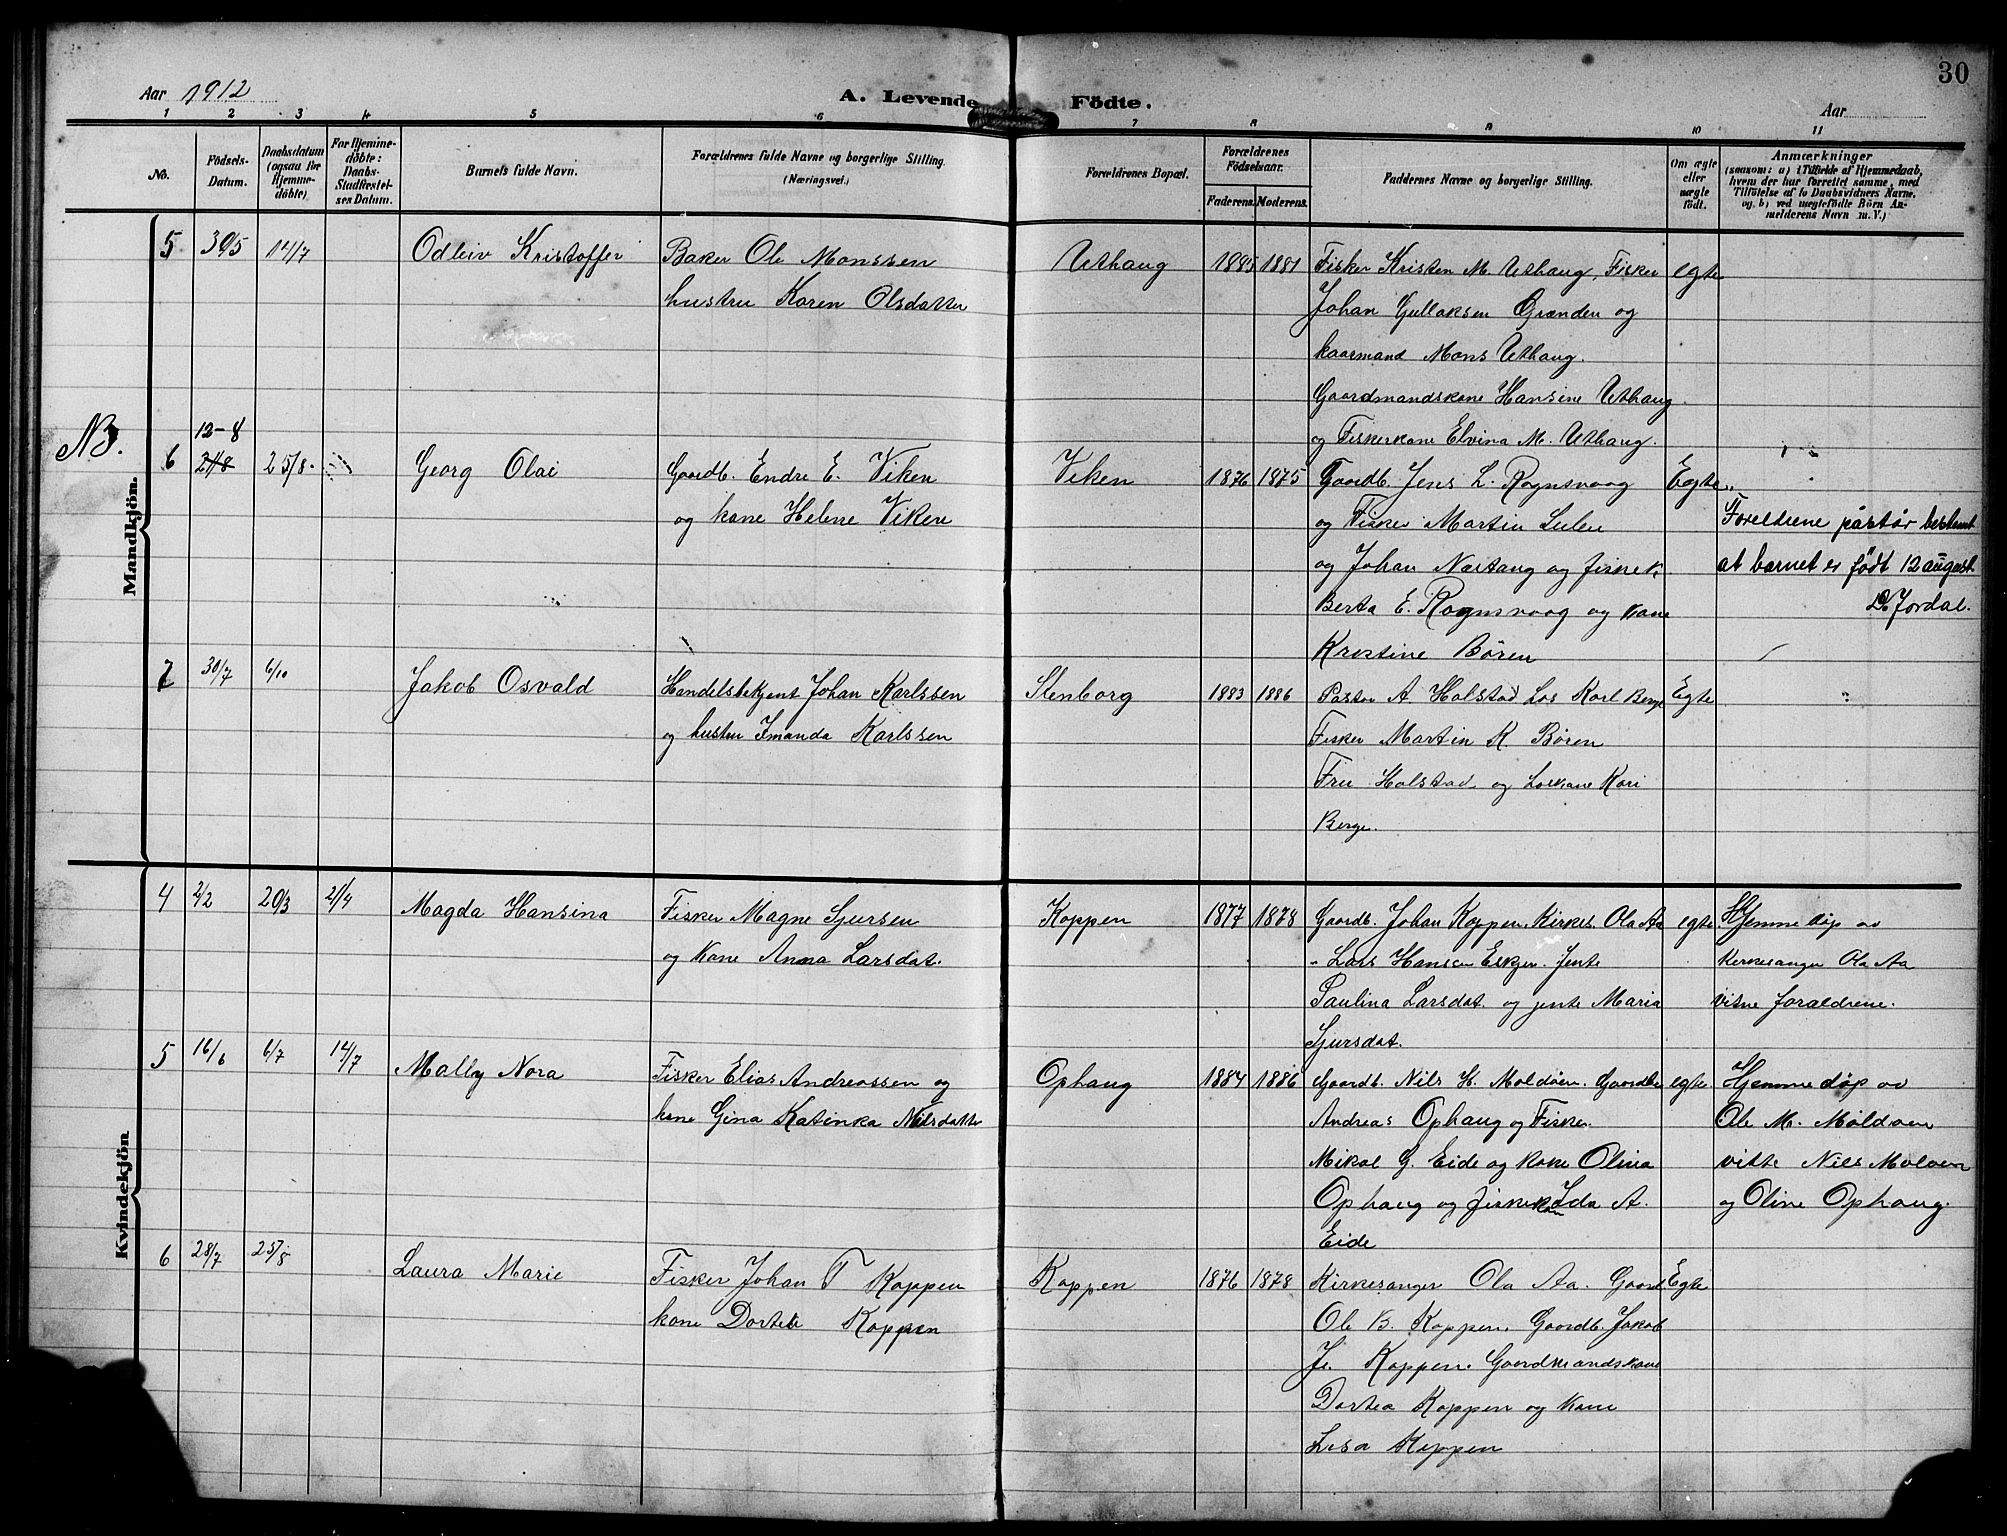 30
Aar 1912
A. Levende Födte.
Aar
1 2 3 4 5 6 7 8 9 10 11
No.
Födsels-Datum.
Daabsdatum (ogsaa for Hjemmedöbte)
For Hjemmedöbte: Daabs-Stadfæstelses Datum.
Barnets fulde Navn.
Forældrenes fulde Navne og borgerlige Stilling.
(Næringsvei.)
Forældrenes Bopæl.
Forældrenes Födselsaar.
Faderens. Moderens.
Faddernes Navne og borgerlige Stilling.
Om ægte eller uægte födt.
Anmærkninger
(saasom: a) i Tilfælde af Hjemmedaab, hvem der har forrettet samme, med Tilföielse af to Daabsvidners Navne. og b) ved uægtefödte Börn Anmelderens Navn m. V.)
Mandkjön.
5 30/5 14/7 Odleiv Kristoffer Baker Ole Monssen Uthaug 1885 1881 Fisker Kristen M. Uthaug, Fisker egte
hustru Karen Olsdatter Johan Gullaksen Grænden og
kaarmand Mons Uthaug.
Gaardmandskone Hansine Uthaug
12-8 og Fiskerkone Elvina M. Uthaug.
NB. 6 21/8 25/8 Georg Olai Gaardb. Endre E. Viken Viken 1876 1875 Gaardb. Jens L. Rognsvaag Egte
og kone Helene Viken og Fisker Martin Lulen Foreldrene påstår bestemt
og Johan Nertaug og fiskek. at barnet er født 12 august.
Berta E. Rognsvaag og kone D. Jordal.
Kristine Bören
7 30/7 6/10 Jakob Osvald Handelsbetjent Johan Karlssen Stenborg 1883 1886 Pastor A. Halstad Los Karl Berge Egte
og hustru Imanda Karlssen Fisker Martin K. Bören
Fru Halstad og Loskone Kari
Berge.
Kvindekjön
4 2/2 20/3 21/4 Magda Hansina Fisker Magne Sjursen Koppen 1877 1878 Gaardb. Johan Koppen, Kirkes. Ola Aa egte Hjemme döp av
og Kone Anna Larsdat. Lars Hansen Eskjer. Jente kirkesanger Ola Aa
Paulina Larsdat. og jente Maria vitne foraldrene.
Sjursdat.
5 16/6 6/7 14/7 Mally Nora Fisker Elias Andreassen og Ophaug 1884 1886 Gaardb. Nils H. Moldöen. Gaardbr egte Hjemme döp av
kone Gina Katinka Nilsdatter Andreas Ophaug og Fisker Ole M. Moldöen
Mikal G. Eide og kone Olina vitte Nils Molöen
Ophaug og fiskerkone Ida A. og Oline Ophaug.
Eide
6 28/7 25/8 Laura Marie Fisker Johan T Koppen Koppen 1876 1878 Kirkesanger Ola Aa. Gaard Egte
kone Dortea Koppen Ole B. Koppen. Gaardb. Jakob
Koppen. Gaardmandskone
Dortea Koppen og kone
Lisa Koppen